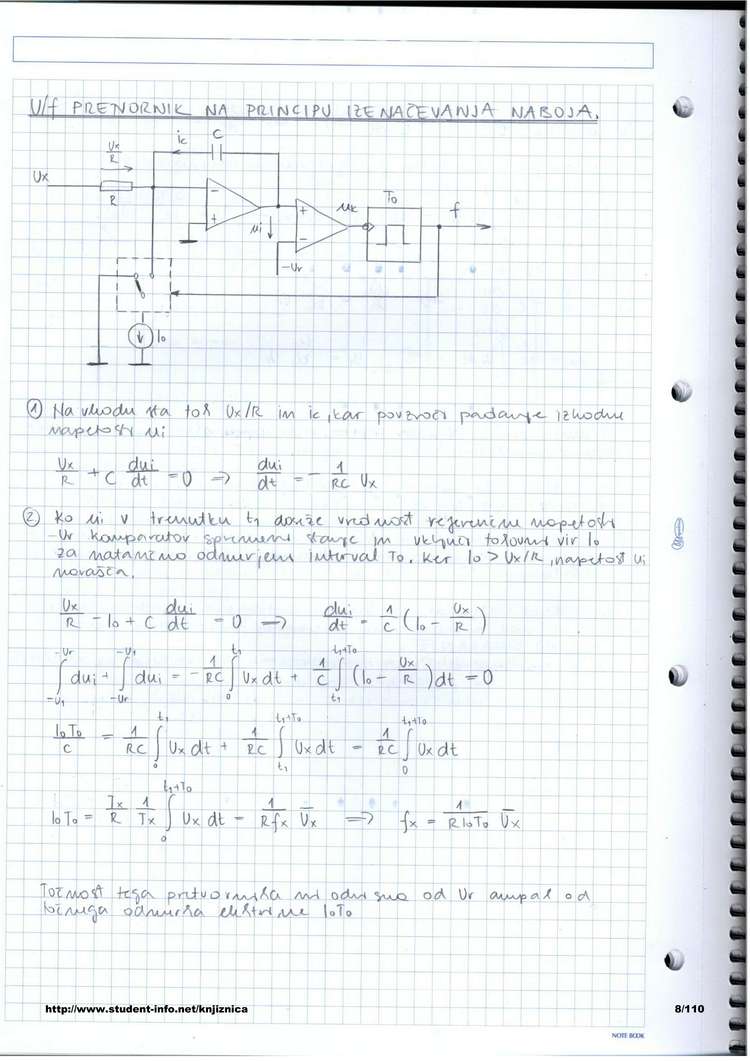 U/f PRETVORNIK NA PRINCIPU IZENAČEVANJA NABOJA.
Ux/R
ic
C
Ux
R
ui
uk
T0
f
-Ur
I0
① Na vhodu sta tok Ux/R in ic, kar povzroči padanje izhodne
napetosti ui
Ux/R + C dui/dt = 0 => dui/dt = - 1/RC Ux
② Ko ui v trenutku t1 doseže vrednost referenčne napetosti
-Ur komparator spremeni stanje in vključi tokovni vir I0
za natančno odmerjeni interval T0. Ker I0 > Ux/R, napetost ui
narašča.
Ux/R - I0 + C dui/dt = 0 => dui/dt = 1/C (I0 - Ux/R)
∫_{-U1}^{-Ur} dui + ∫_{-Ur}^{-U1} dui = - 1/RC ∫_0^{t1} Ux dt + 1/C ∫_{t1}^{t1+T0} (I0 - Ux/R) dt = 0
I0T0/C = 1/RC ∫_0^{t1} Ux dt + 1/RC ∫_{t1}^{t1+T0} Ux dt = 1/RC ∫_0^{t1+T0} Ux dt
I0T0 = Tx/R 1/Tx ∫_0^{t1+T0} Ux dt = 1/Rfx Ūx => fx = 1/RI0T0 Ūx
Točnost tega pretvornika ni odvisna od Ur ampak od
točnega odmerka elektrine I0T0
http://www.student-info.net/knjiznica
8/110
NOTE BOOK